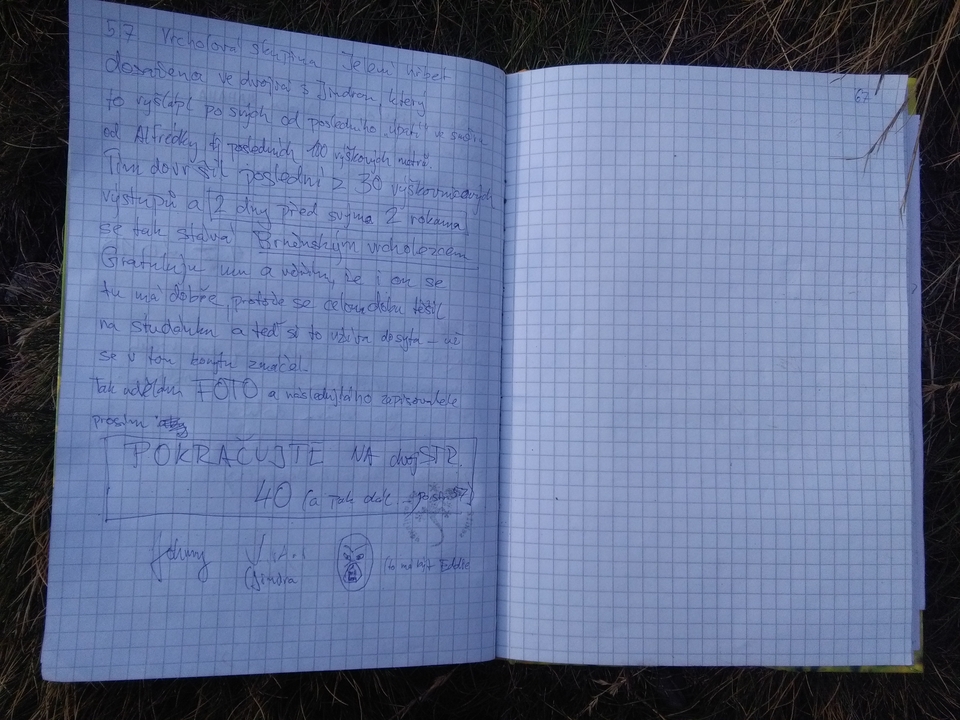 5/7 Vrcholová skupina Jelení hřbet
dosažena ve dvojici s Jindrou, který
to vyšlápl po svých od posledního
od Alfrédky tj posledních 100 výškových metrů.
Tím dovršil poslední z 30
výstupů a 2 dny před svýma 2 rokama
se tak stává Brněnským vrcholezcem
Gratuluju mu a věřím, že i on se
tu má dobře, protože se celou dobu těšil
na studánku a teď si to užívá dosyta – už
se v tom
Tak udělám FOTO a následujícího zapisovatele
prosím
POKRAČUJTE NA dvojSTR.
40 (a tak dál
Johny
(Jindra
(to má být Eddie
67